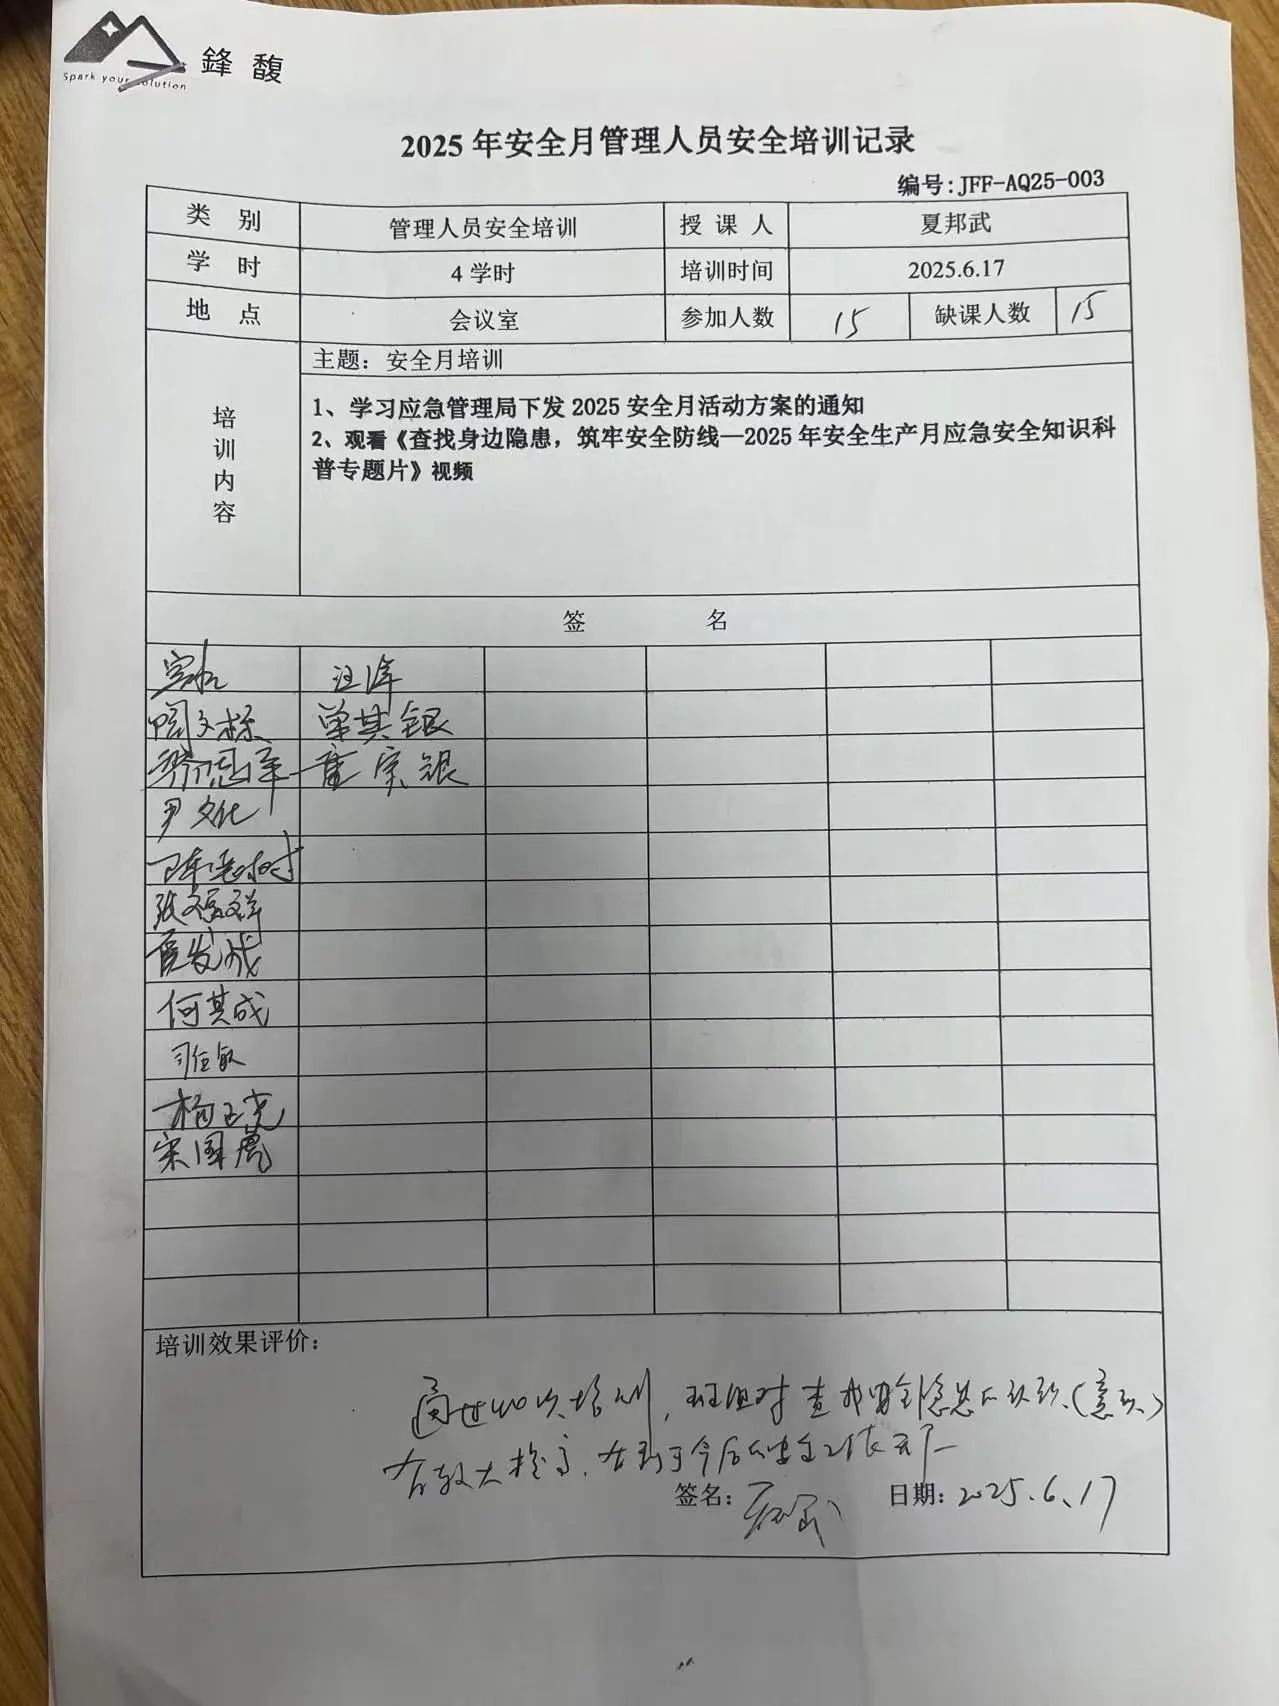 Spark your solution
鋒馥
2025年安全月管理人员安全培训记录
编号:JFF-AQ25-003
类 别 管理人员安全培训 授课人 夏邦武
学 时 4学时 培训时间 2025.6.17
地 点 会议室 参加人数 15 缺课人数 15
培训内容
主题：安全月培训
1、学习应急管理局下发2025安全月活动方案的通知
2、观看《查找身边隐患，筑牢安全防线—2025年安全生产月应急安全知识科
普专题片》视频
签 名
汪军
周文标 单其银
童家银
尹文化
张福祥
夏发成
何其成
杨正党
宋国虎
培训效果评价：
通过 培训，班组对查找安全隐患的认识（意识）
有较大提高，有利于今后的安全工作开
签名： 日期：2025.6.17